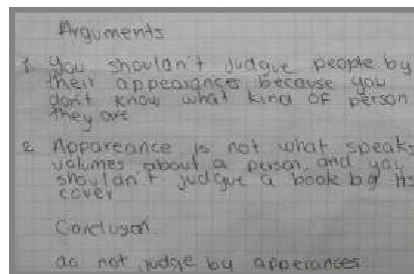 Arguments
1 you shouldn't judgue people by
their appearances because you
don't know what kind of person
they are
2 Appareance is not what speaks
volumes about a person, and you
shouldn't judgue a book by its
cover
Conclusion.
do not judge by apperances